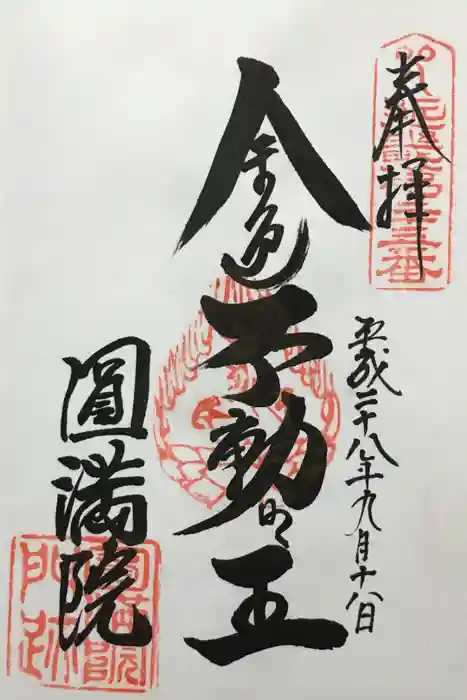 奉拝
平成二十八年九月十八日
金色不動明王
圓満院